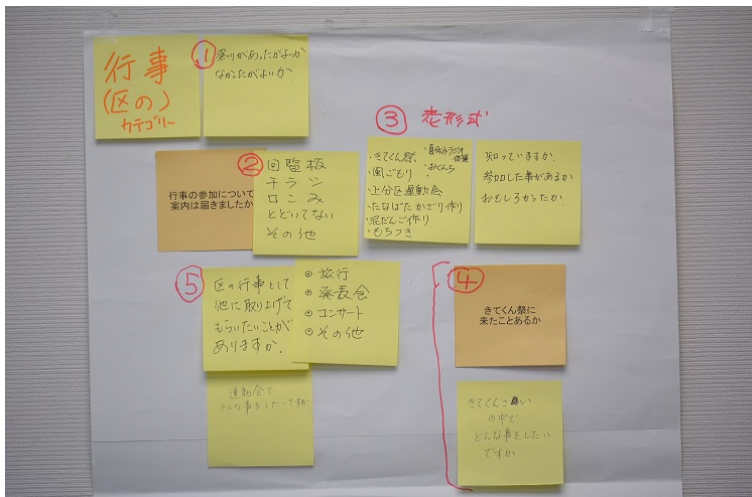 行事
(区の)
カテゴリー
①
祭りがあったがよいか
なかったがよいか
②
行事の参加について
案内は届きましたか
回覧板
チラシ
口こみ
とどいてない
その他
③ 表形式
・きてくん祭
・風ごもり
・上分区運動会
・たなばたかざり作り
・泥だんご作り
・もちつき
・夏休みラジオ体操
・おくんち
知っていますか
参加した事があるか
おもしろかったか
⑤
区の行事として
他に取り上げて
もらいたいことが
ありますか。
旅行
発表会
コンサート
その他
運動会で
どんな事をしたいですか
④
きてくん祭に
来たことあるか
の中で
どんな事をしたい
ですか